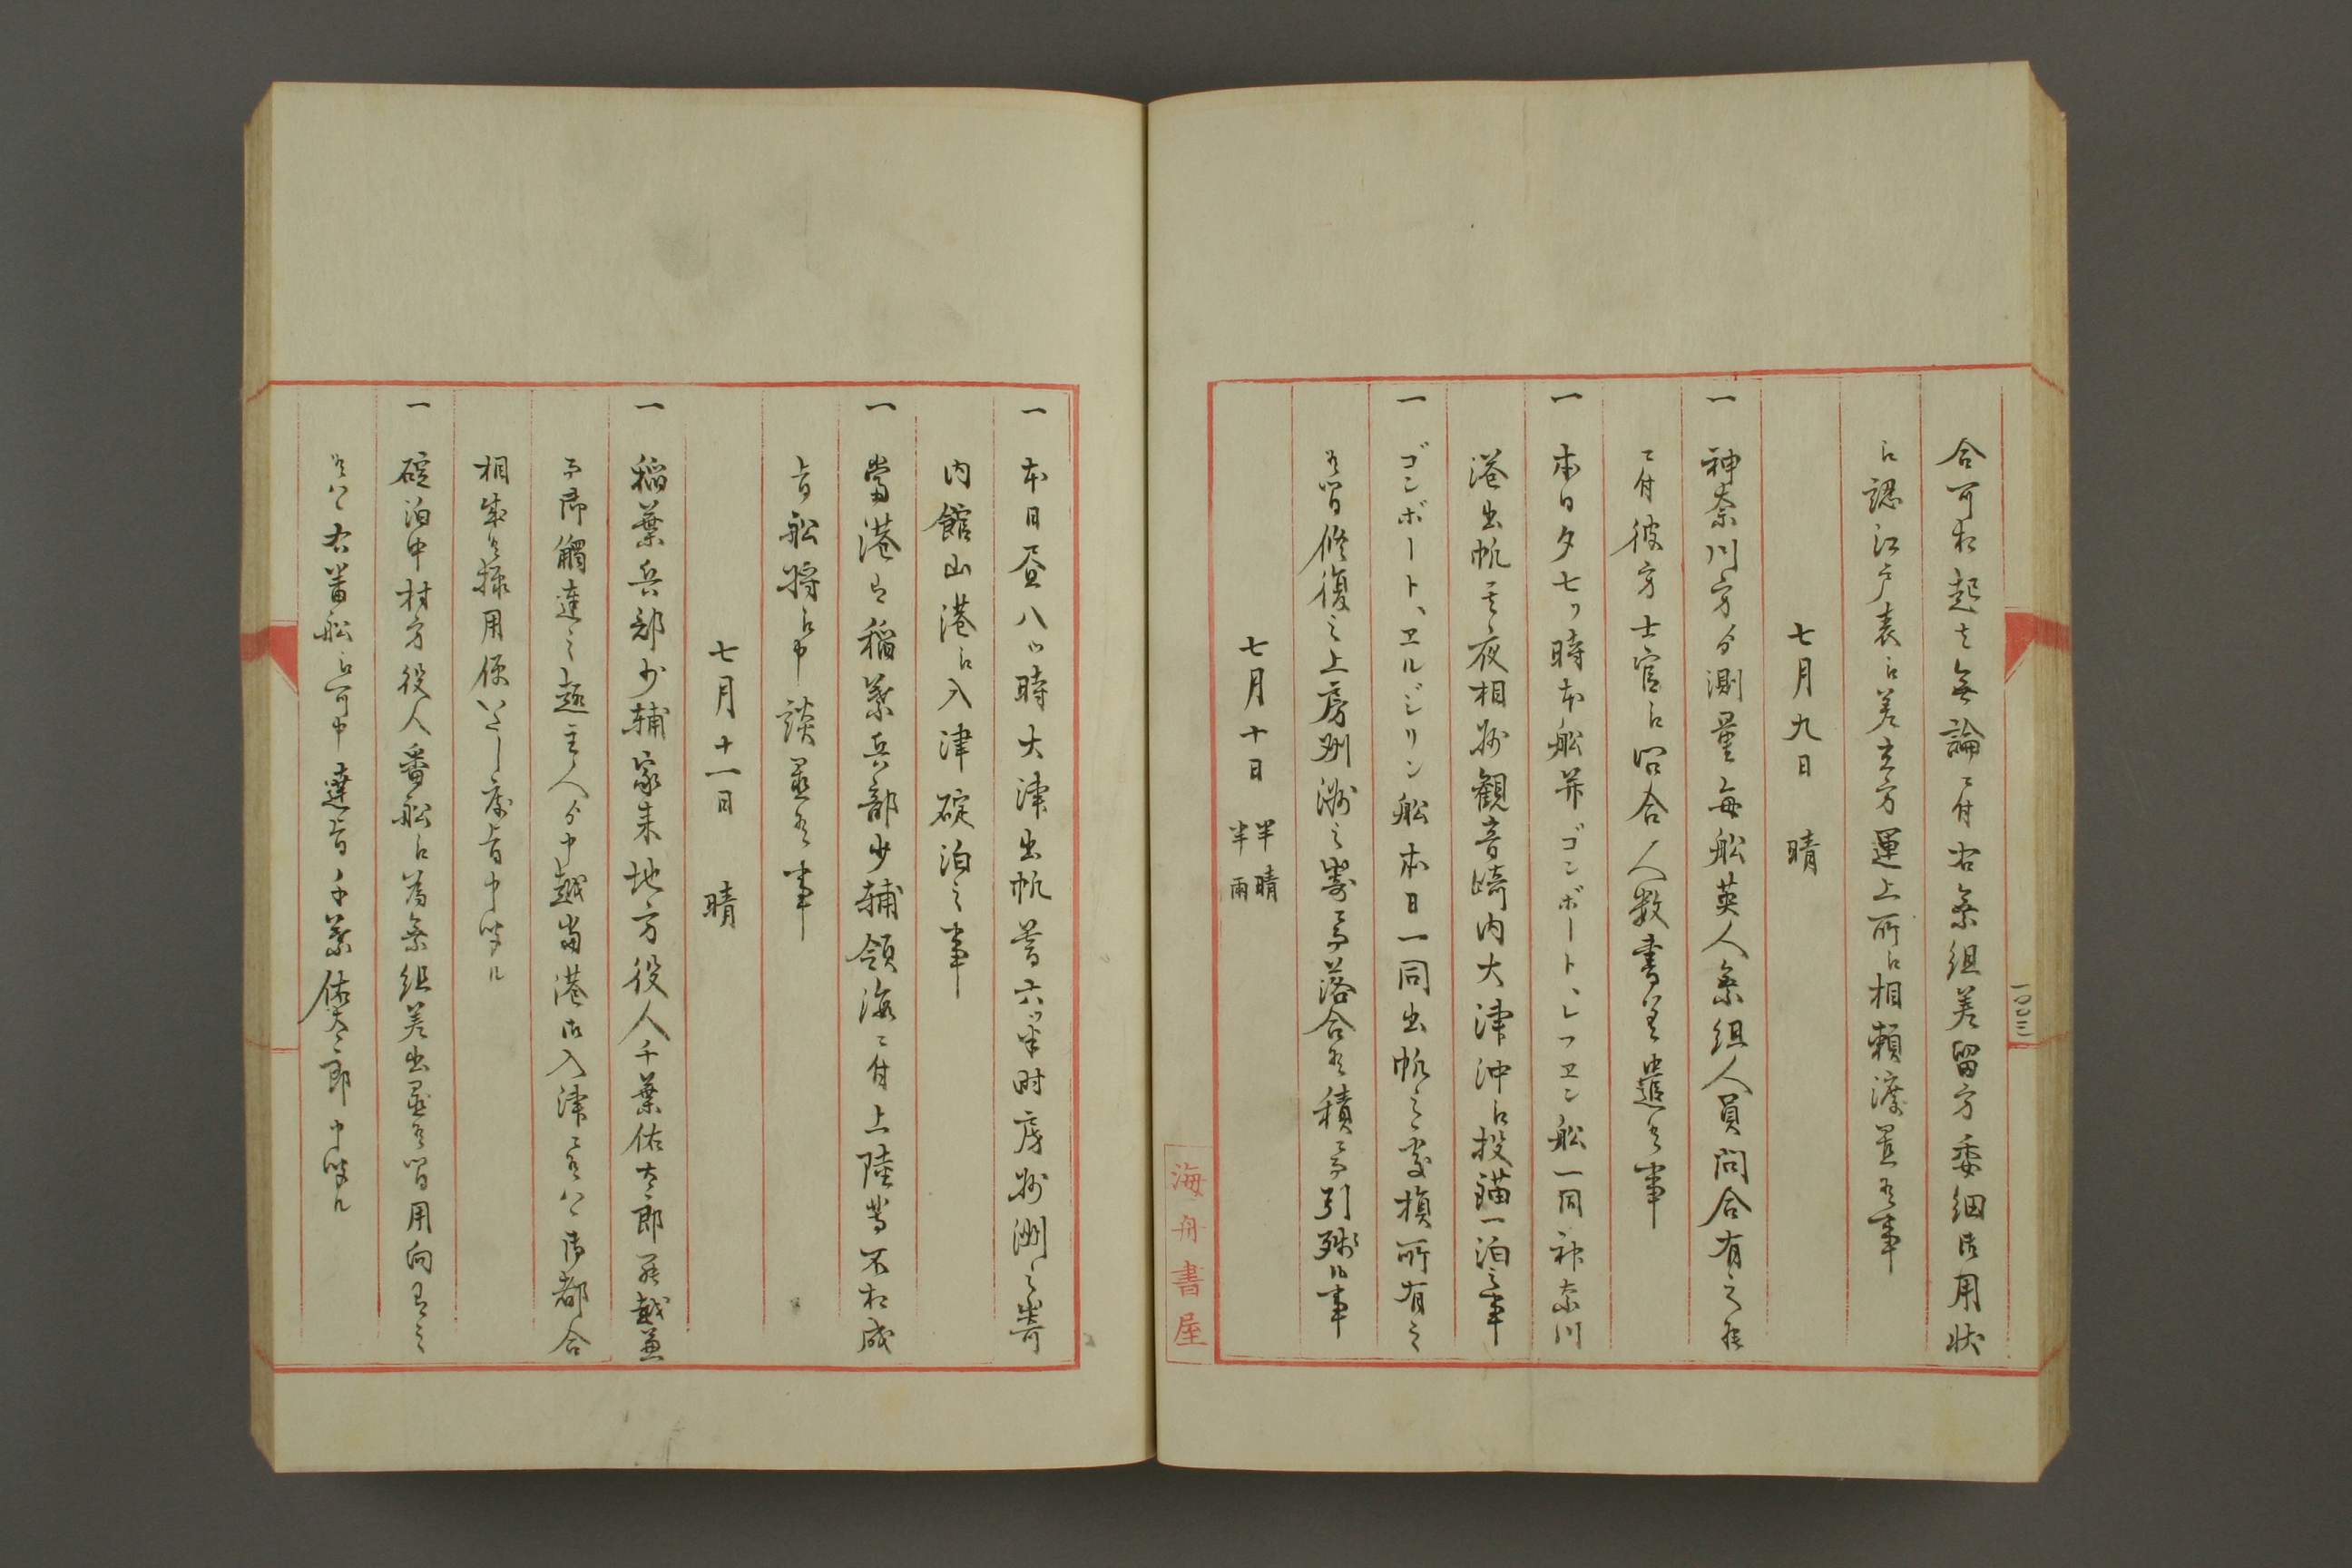 合可相起は無論ニ付右乗組差留方委細御用状
ニ認江戸表江差立方運上所江相頼渡置候事
七月九日 晴
一 神奈川方ゟ測量毎船英人乗組人員問合有之候
ニ付彼方士官江問合人数書差遣候事
一 本日夕七ツ時本船并ゴンボート、レフエン船一同神奈川
港出帆其夜相州観音崎内大津沖江投錨一泊之事
一 ゴンボート、ヱルジリン船本日一同出帆之処損所有之
候間修復之上房州洲之㟢ニ而落合候積ニ而引残候事
七月十日 半晴半雨
海舟書屋
一 本日昼八ツ時大津出帆暮六ツ半時房州洲之㟢
内館山港江入津碇泊之事
一 當港は稲葉兵部少輔領海ニ付上陸等不相成
旨船将江申談置候事
七月十一日 晴
一 稲葉兵部少輔家来地方役人千葉佑太郎罷越兼
而御觸達之趣主人ゟ申越當港御入津ニ候ハヽ御都合
相成候様用便いたし度旨申聞ル
一 碇泊中村方役人番船江為乗組差出置候間用向有之
候ハヽ右番船江可申達旨千葉佑太郎申聞ル